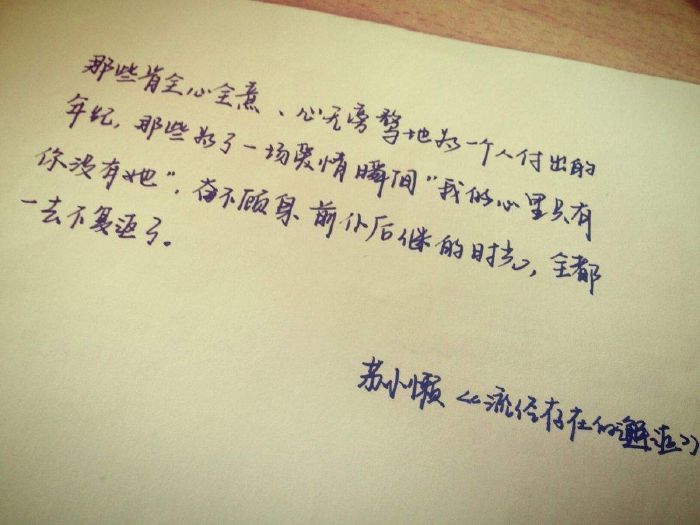 那些肯全心全意、心无旁骛地为一个人付出的
年纪，那些为了一场爱情瞬间“我的心里只有
你没有她”，奋不顾身 前仆后继的时光，全都
一去不复返了。
苏小懒《流经存在的邂逅》